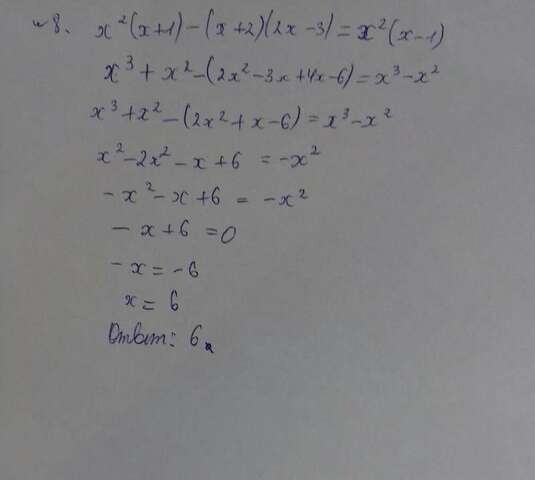 №8. x²(x+1)-(x+2)(2x-3)=x²(x-1)
x³+x²-(2x²-3x+4x-6)=x³-x²
x³+x²-(2x²+x-6)=x³-x²
x²-2x²-x+6=-x²
-x²-x+6=-x²
-x+6=0
-x=-6
x=6
Ответ: 6.